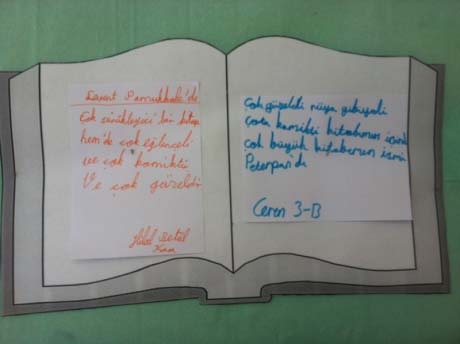 Levent Pamukkale'de
Çok sürükleyici bir kitap
hem'de çok eğlenceli
ve çok komikti
Ve çok güzeldi
Hilal Betül
Çok güzeldi rüya gibiydi
çok komikti kitabımın
çok büyük kitabımın ismi
Peterpan'dı
Ceren 3-B